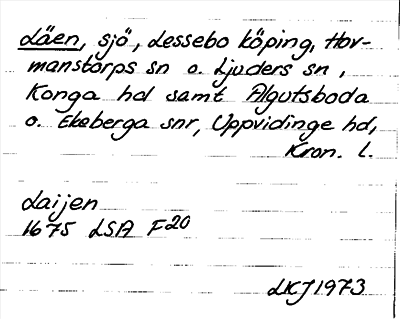 Läen, sjö, Lessebo köping, Hov-
manstorps sn o. Ljuders sn,
Konga hd samt Algutsboda
o. Ekeberga snr, Uppvidinge hd,
Kron. l.
Laijen
1675 LSA F20
LKJ 1973